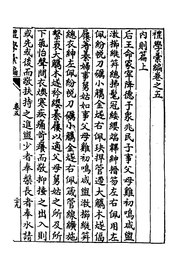 禮學彙編卷之五
內則篇上
后王命冢宰降德于衆兆民子事父母雞初鳴咸盥
漱櫛縰笄總拂髦冠緌纓端韠紳搢笏左右佩用左
佩紛帨刀礪小觿金燧右佩玦捍管遰大觿木燧偪
屨著綦婦事舅姑如事父母雞初鳴咸盥漱櫛縰笄
總衣紳左佩紛帨刀礪小觿金燧右佩箴管線纊施
縏袠大觿木燧衿纓綦屨以適父母舅姑之所及所
下氣怡聲問衣燠寒疾痛苛癢而敬抑搔之出入則
或先或後而敬扶持之進盥少者奉槃長者奉水請